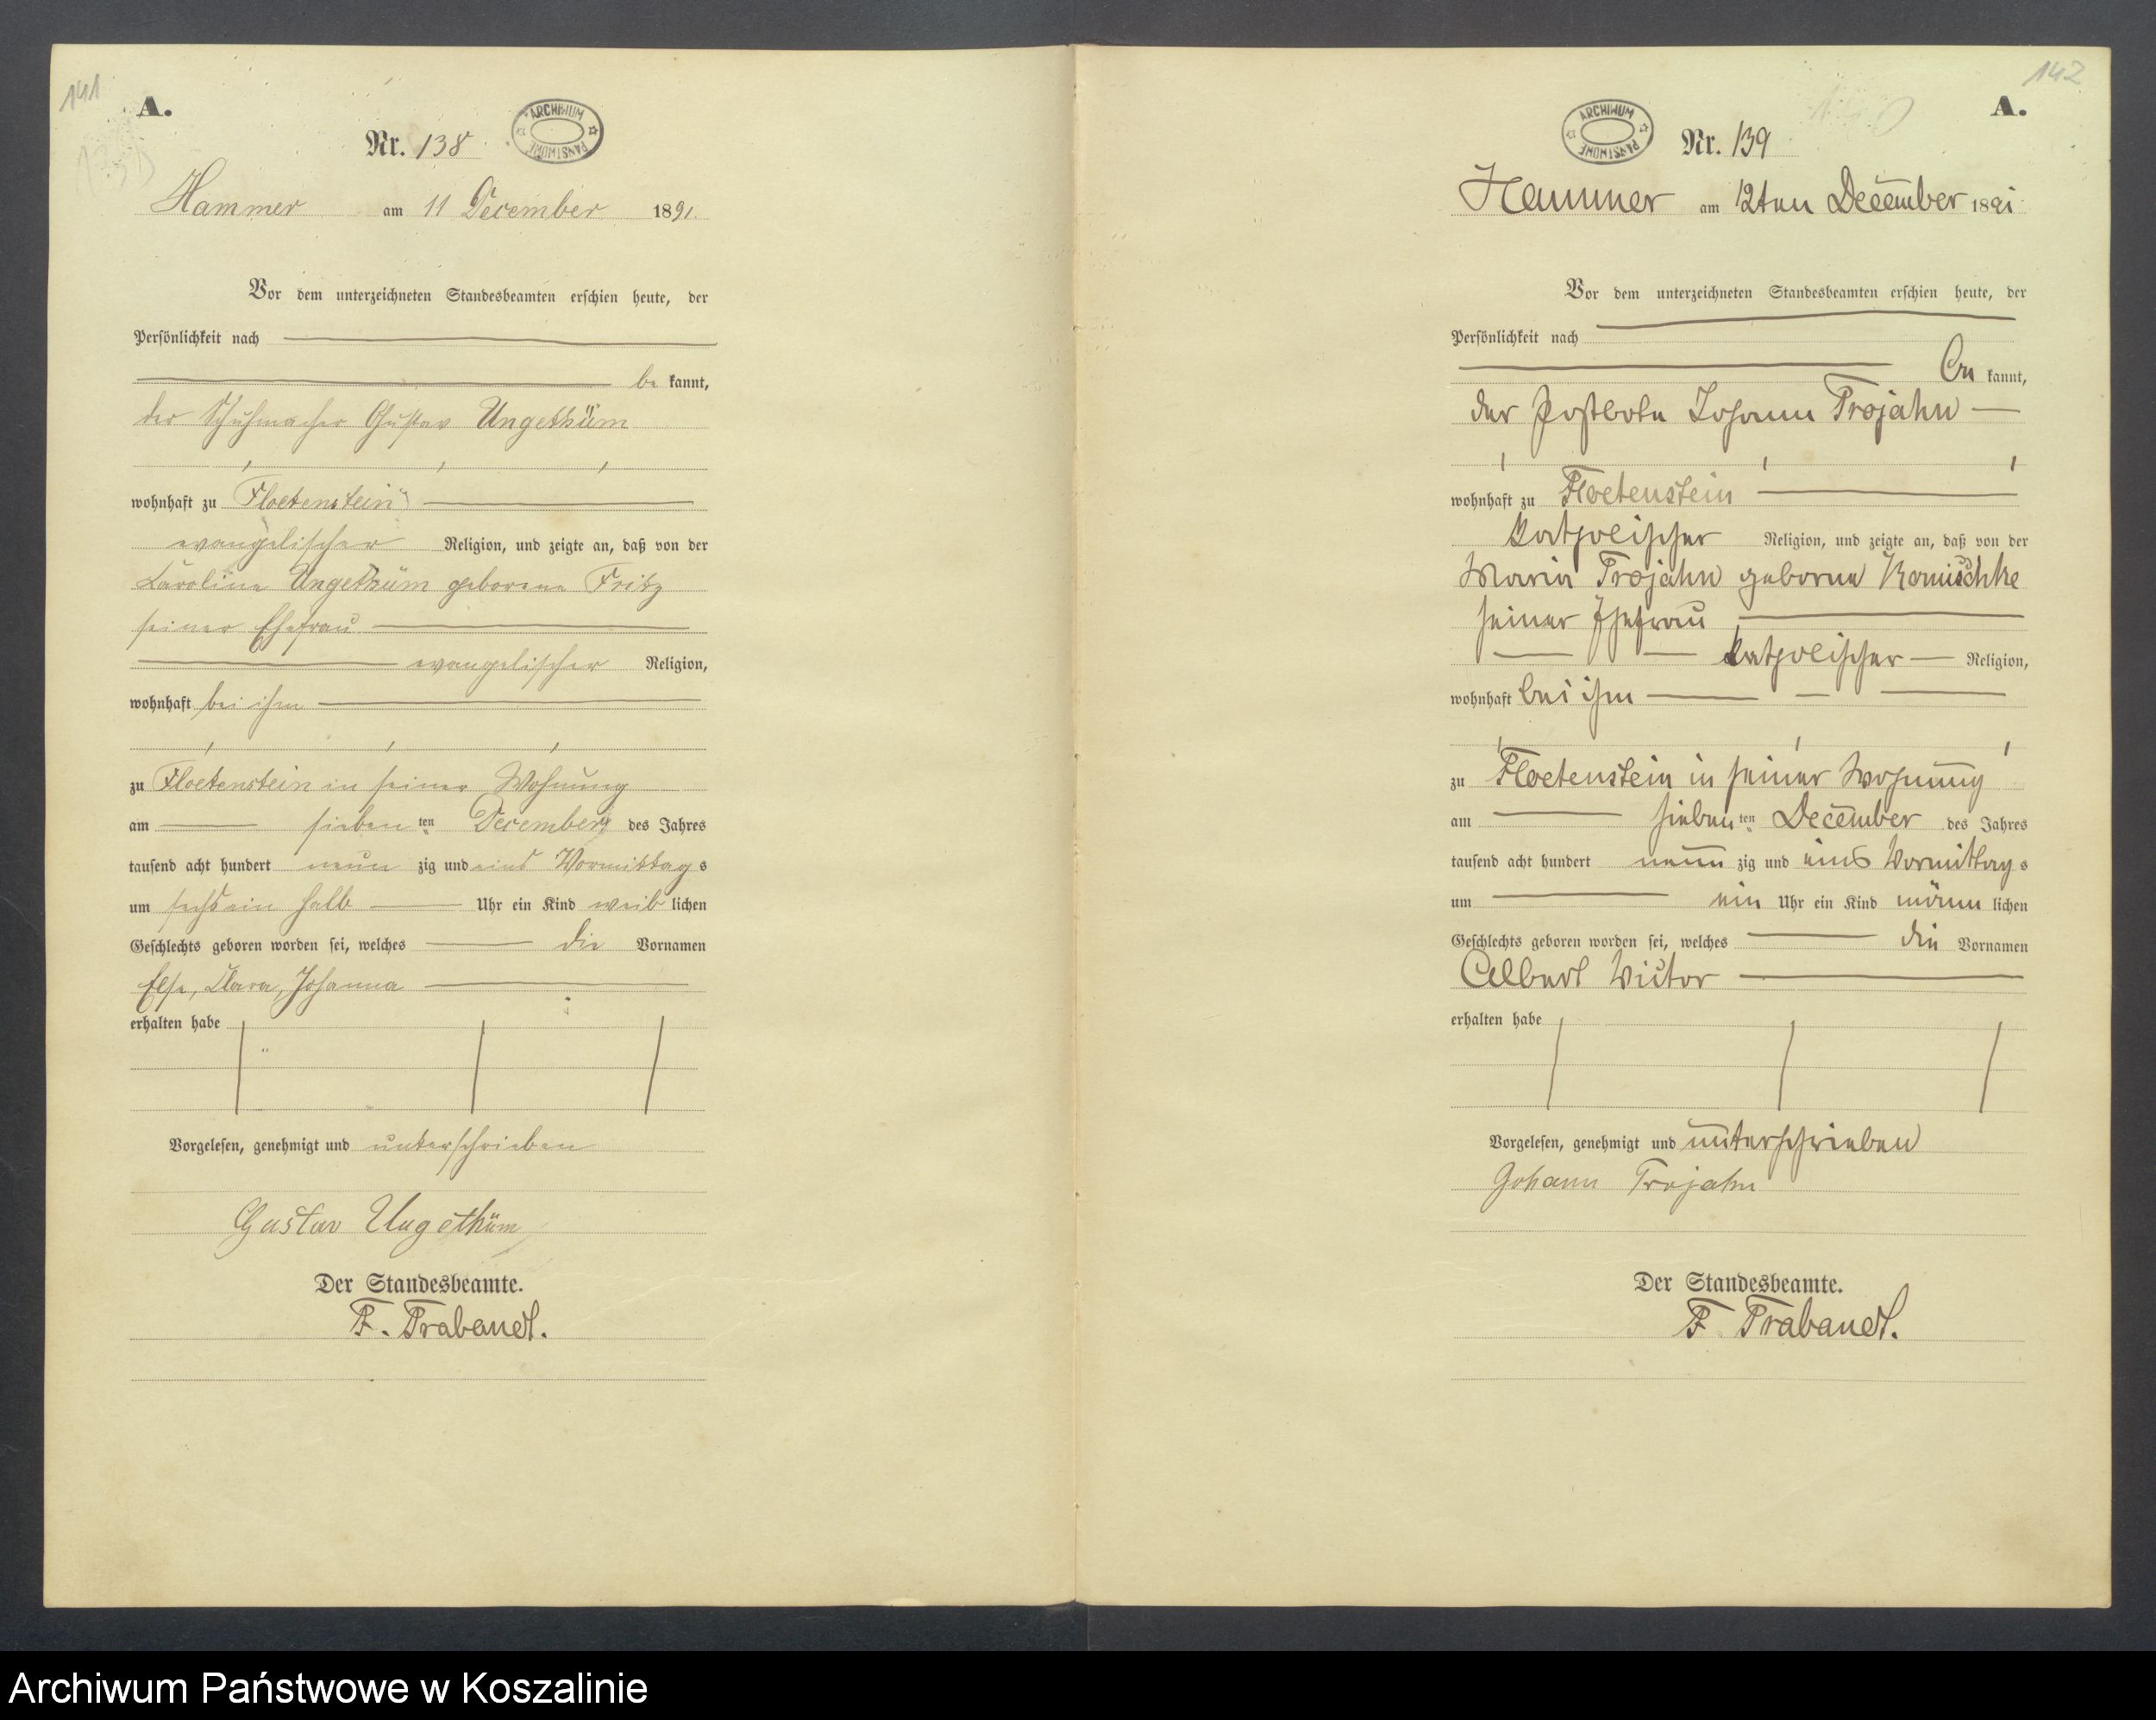 141
A.
Nr. 138
ARCHIWUM PAŃSTWOWE
Hammer am 11 December 1891.
Vor dem unterzeichneten Standesbeamten erschien heute, der
Persönlichkeit nach
be kannt,
der Schuhmacher Gustav Ungethüm
wohnhaft zu Floetenstein
evangelischer Religion, und zeigte an, daß von der
Karoline Ungethüm geborene Fritz
seiner Ehefrau
evangelischer Religion,
wohnhaft bei ihm
zu Floetenstein in seiner Wohnung
am sieben ten December des Jahres
tausend acht hundert neun zig und eins Vormittag s
um sechs ein halb Uhr ein Kind weib lichen
Geschlechts geboren worden sei, welches die Vornamen
Else, Clara, Johanna
erhalten habe
Vorgelesen, genehmigt und unterschrieben
Gustav Ungethüm
Der Standesbeamte.
F. Trabandt.
142
A.
ARCHIWUM PAŃSTWOWE
Nr. 139
Hammer am 12ten December 1891
Vor dem unterzeichneten Standesbeamten erschien heute, der
Persönlichkeit nach
be kannt,
der Postbote Johann Trojahn
wohnhaft zu Floetenstein
katholischer Religion, und zeigte an, daß von der
Maria Trojahn geborne
seiner Ehefrau
katholischer Religion,
wohnhaft bei ihm
zu Floetenstein in seiner Wohnung
am sieben ten December des Jahres
tausend acht hundert neun zig und eins Vormittag s
um ein Uhr ein Kind männ lichen
Geschlechts geboren worden sei, welches die Vornamen
Albert Victor
erhalten habe
Vorgelesen, genehmigt und unterschrieben
Johann Trojahn
Der Standesbeamte.
F Trabandt.
Archiwum Państwowe w Koszalinie